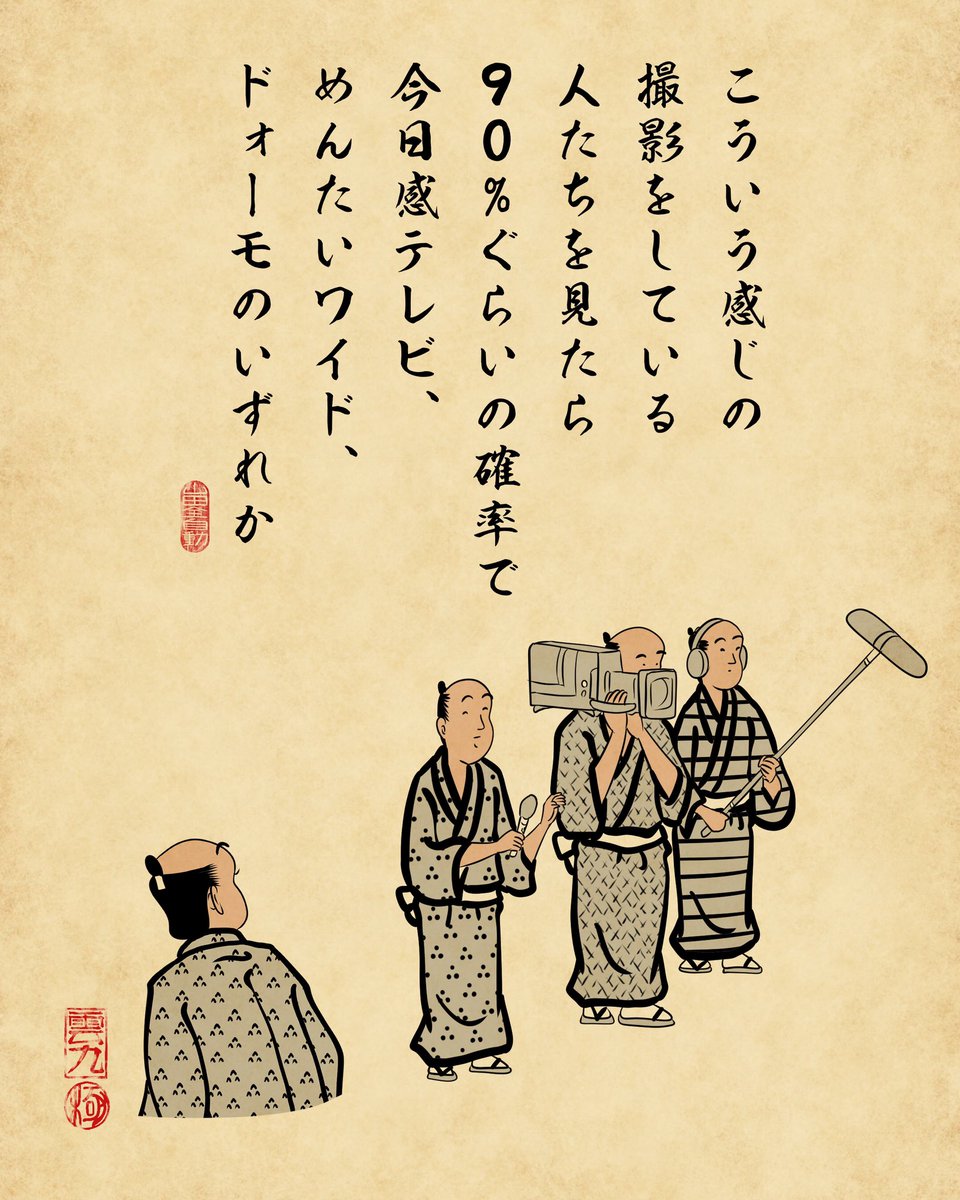 こういう感じの
撮影をしている
人たちを見たら
90%ぐらいの確率で
今日感テレビ、
めんたいワイド、
ドォーモのいずれか